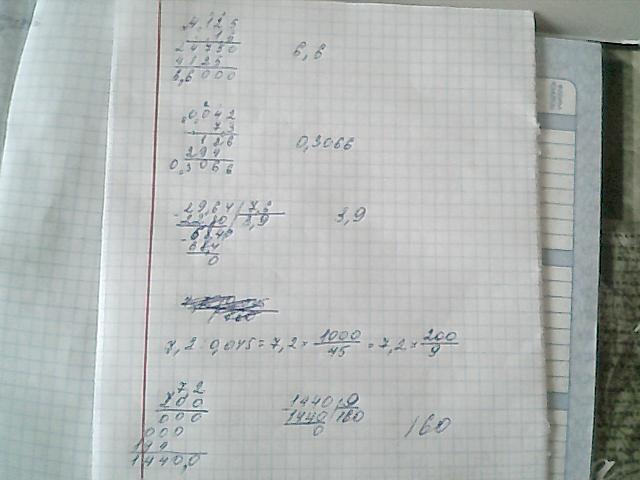 4,125
1,6
24750
4125
6,6000
6,6
0,042
7,3
126
294
0,3066
0,3066
29,64 7,6
2280 3,9
684
684
0
3,9
7,2 : 0,045 = 7,2 × 1000/45 = 7,2 × 200/9
7,2
200
000
000
144
1440,0
1440 9
1440 160
0
160